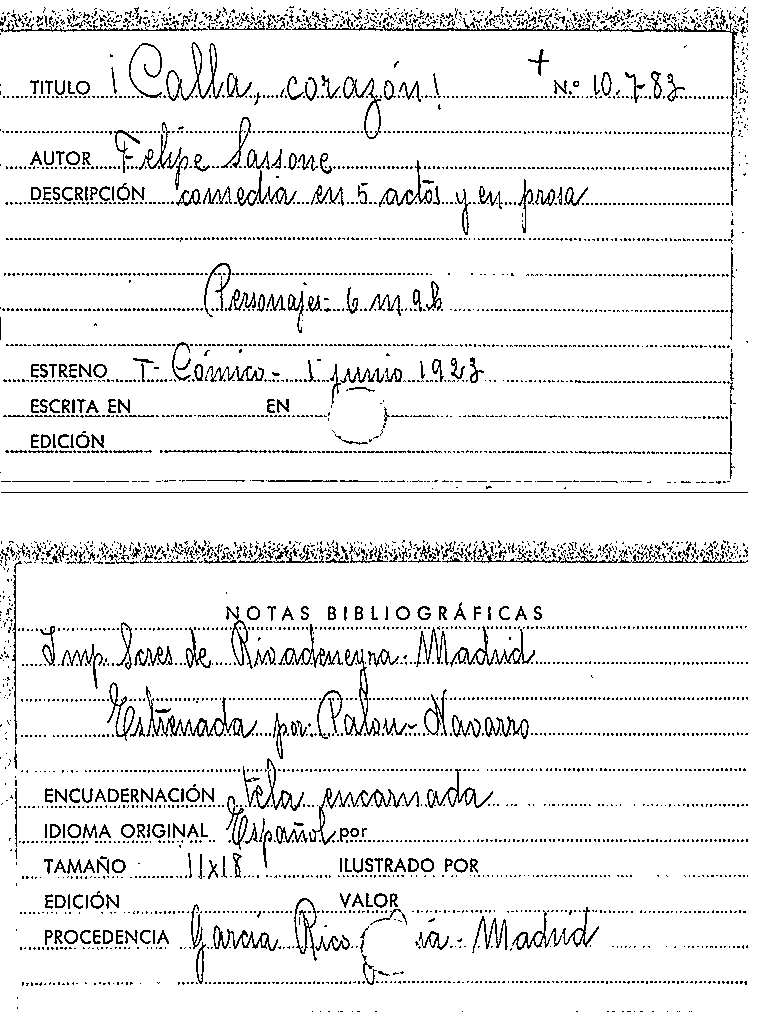 TITULO ¡Calla, corazón! + N.º 10.783
AUTOR Felipe Sassone
DESCRIPCIÓN comedia en 5 actos y en prosa
Personajes- 6 m 9 h
ESTRENO T- Cómico- 1 junio 1923
ESCRITA EN EN
EDICIÓN
NOTAS BIBLIOGRÁFICAS
Imp. Scres de Rivadeneyra- Madrid
Estrenada por: Palou- Navarro
ENCUADERNACIÓN tela encarnada
IDIOMA ORIGINAL Español por
TAMAÑO 11x18 ILUSTRADO POR
EDICIÓN VALOR
PROCEDENCIA García Rico ía- Madrid